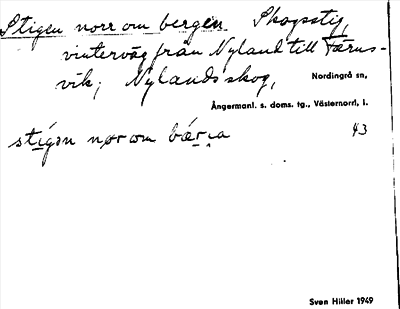 Stigen norr om bergen. Skogsstig,
vinterväg från Nyland till Färns-
vik; Nylands skog,
Nordingrå sn,
Ångermanl. s. doms. tg., Västernorrl. l.
stígən nǫr om bǽr̥ɩa 43
Sven Hiller 1949